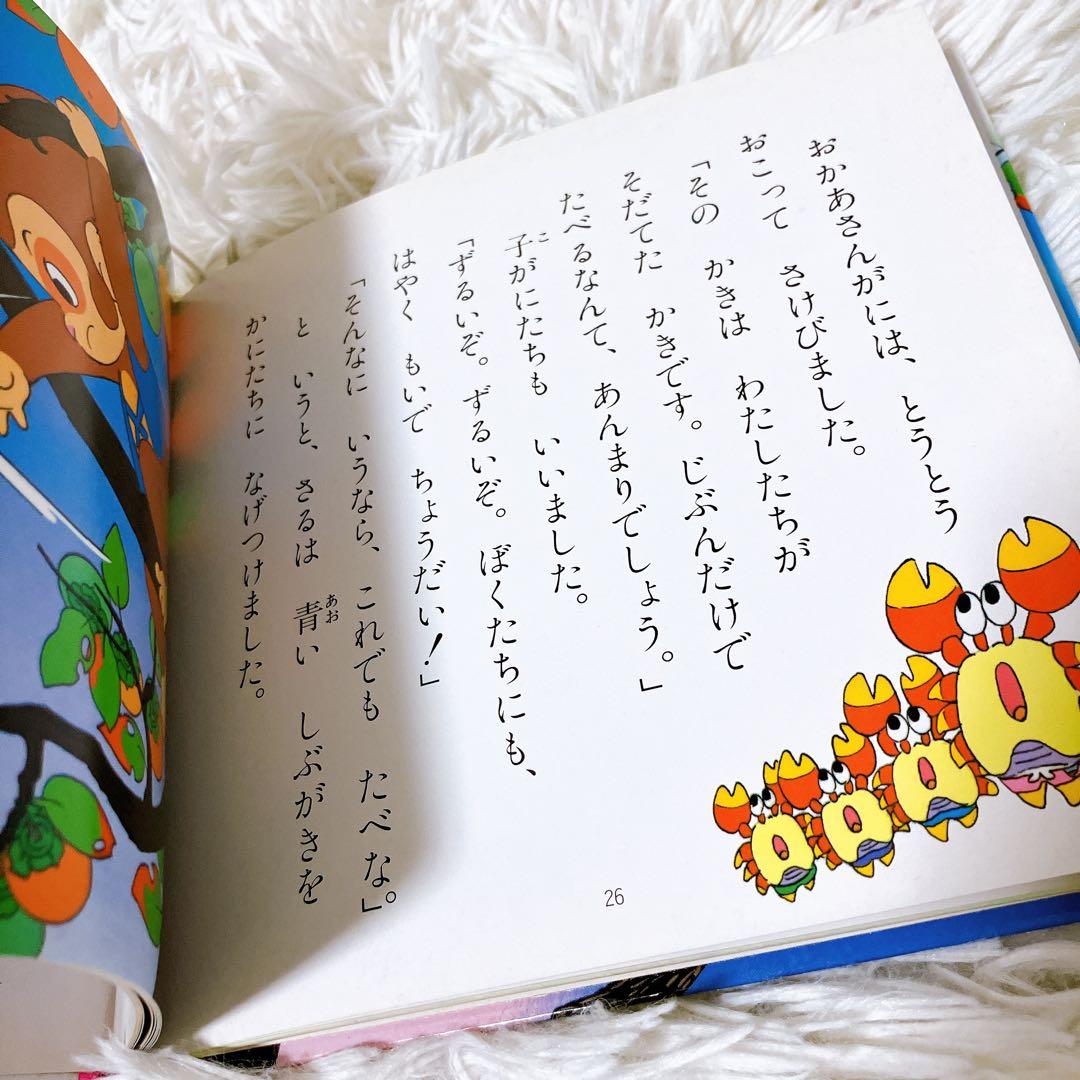 おかあさんがには、とうとう
おこって さけびました。
「その かきは わたしたちが
そだてた かきです。じぶんだけで
たべるなんて、あんまりでしょう。」
子がにたちも いいました。
こ
「ずるいぞ。ずるいぞ。ぼくたちにも、
はやく もいで ちょうだい！」
「そんなに いうなら、これでも たべな。」
と いうと、さるは 青い しぶがきを
あお
かにたちに なげつけました。
26